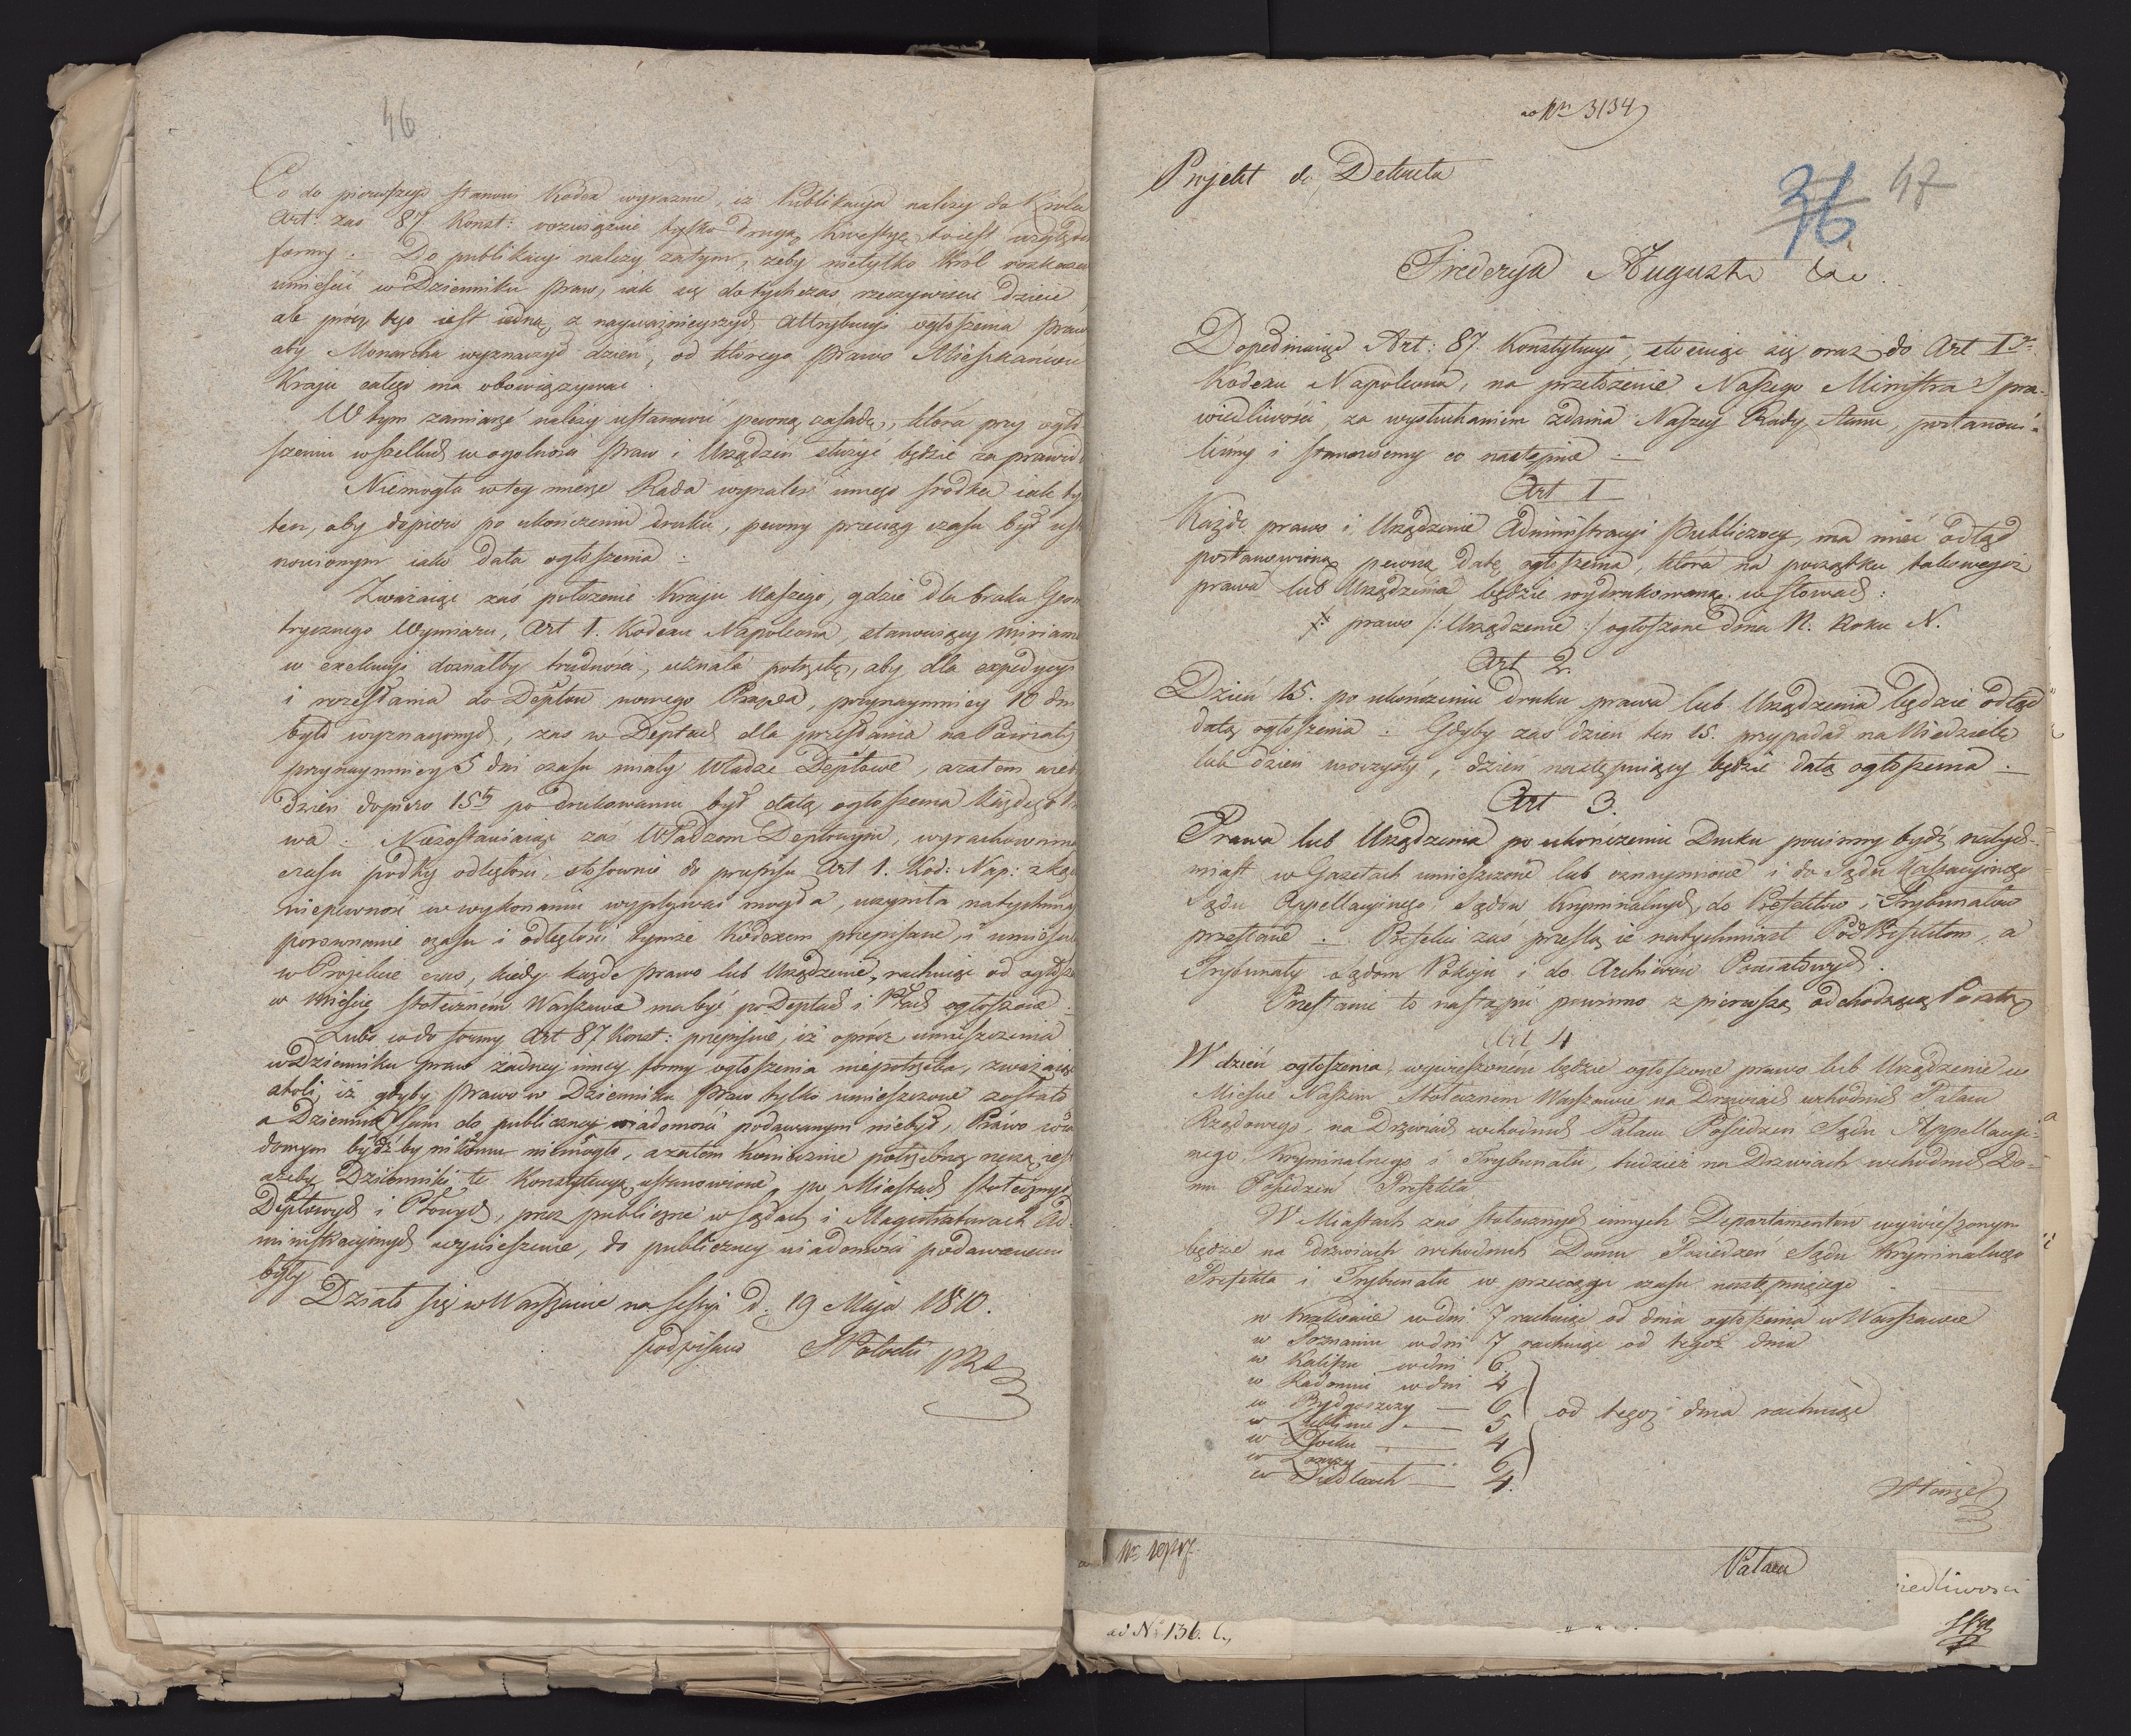 46
Co do pierwszego stanowi Kodex wyraznie, iż Publikacya należy do Króla
Art: zaś 87 Konst: rozwiązuie tylko drugą kwestyę, to iest względem
formy. Do publikacyi należy zatym, żeby nietylko Król rozkazał
umieścić w Dzienniku praw, iak się dotychczas rzeczywiście dzieie
ale prócz tego iest iedną z nayważnieyszych attrybucyi ogłoszenia praw
aby Monarcha wyznaczył dzień, od którego prawo Mieszkańców
Kraju całego ma obowiązywać.
W tym zamiarze należy ustanowić pewną zasadę, która przy ogło
szeniu wszelkich w ogolności praw i Urządzeń służyć będzie za prawidło
Niemogła w tey mierze Rada wynaleść innego środka iak ty
ten, aby dopiero po ukończeniu druku, pewny przeciąg czasu był usta
nowionym iako data ogłoszenia.
Zważaiąc zaś położenie Kraju Naszego, gdzie dla braku Geome
trycznego Wymiaru, Art 1. Kodexu Napoleona, stanowiący
w exekucyi doznałby trudności, uznała potrzebę, aby dla expedycyi
i rozesłania do Deptów nowego Prawa, przynaymniey 10 dni
było wyznaczonych, zaś w Deptach dla przesłania na Powiaty
przynaymniey 5 dni czasu miały Władze Deptowe, azatem
dzień dopiero 15ty po drukowaniu był datą ogłoszenia każdego
wa. Niezostawiaiąc zaś Władzom Deptowym, wyrachowania
czasu podług odległości, stosownie do przepisu Art 1. Kod: Nap: zkąd
niepewność w wykonaniu wypływać mogła, uczyniła natychmiast
porównanie czasu i odległości tymże Kodexem przepisane, i umieściła
w Projekcie czas, kiedy każde prawo lub Urządzenie, rachuiąc od ogłosze
w mieście stołecznem Warszawie ma być po Deptach i Ptach ogłoszone.
Lubo co do formy Art 87 Konst: przepisuie, iż oprócz umieszczenia
w Dzienniku praw żadney inney formy ogłoszenia niepotrzeba, zważaiąc
atoli, iż gdyby prawo w Dzienniku praw tylko umieszczone zostało
a Dziennik sam do publiczney wiadomości podawanym niebył, Prawo wia
domym bydź by nikomu niemogło, azatem koniecznie potrzebną rzeczą iest
ażeby Dzienniki te Konstytucyą ustanowione, po Miastach stołecznych
Deptowych i Ptowych, przez publiczne w Sądach i Magistraturach Ad-
ministracyinych wywieszenie, do publiczney wiadomości podawanemi
były
Działo się w Warszawie na Sessyi d. 19 Maja 1810.
podpisano St Potocki PRS
ad Nr 3134
Projekt do Dekretu
36 47
Frideryk August &c.
Dopełniaiąc Art: 87. Konstytucyi, stosuiąc się oraz do Art I go
Kodexu Napoleona, na przełożenie Naszego Ministra Spra-
wiedliwości, za wysłuchaniem zdania Naszey Rady Stanu, postanowi-
liśmy i stanowiemy co następuie.
Art I
Każde prawo i Urządzenie Administracyi Publiczney, ma mieć odtąd
postanowioną pewną datę ogłoszenia, która na początku takowegoż
prawa lub Urządzenia będzie wydrukowana w słowach:
prawo /: Urządzenie :/ ogłoszone dnia N. Roku N.
Art 2.
Dzień 15. po ukończeniu druku prawa lub Urządzenia będzie odtąd
datą ogłoszenia. Gdyby zaś dzień ten 15. przypadał na Niedzielę
lub dzień uroczysty, dzień następuiący będzie datą ogłoszenia.
Art 3.
Prawa lub Urządzenia po ukończeniu Druku powinny bydź natych-
miast w Gazetach umieszczone lub oznaymione i do Sądu Kassacyinego
Sądu Appellacyinego, Sądów Kryminalnych, do Prefektów i Trybunałów
przesłane. Prefekci zaś prześlą ie natychmiast PodPrefektom, a
Trybunały Sądom Pokoju i do Archiwów Powiatowych.
Przesłanie to nastąpić powinno z pierwszą odchodzącą Pocztą
Art 4
W dzień ogłoszenia, wywieszonem będzie ogłoszone prawo lub Urządzenie w
Mieście Naszem Stołecznem Warszawie na Drzwiach wchodnich Pałacu
Rządowego, na Drzwiach wchodnich Pałacu Posiedzeń Sądu Appellacyi-
nego, Kryminalnego i Trybunału, tudzież na Drzwiach wchodnich Do-
mu Posiedzeń Prefekta
W Miastach zaś stołecznych innych Departamentów wywieszonym
będzie na drzwiach wchodnich Domu Posiedzeń Sądu Kryminalnego
Prefekta i Trybunału w przeciągu czasu następuiącego
w Krakowie w dni 7 rachuiąc od dnia ogłoszenia w Warszawie
w Poznaniu w dni 7 rachuiąc od tegoż dnia
w Kaliszu w dni 6.
w Radomiu w dni 4
w Bydgoszczy — 6
od tegoż dnia rachuiąc
w Lublinie — 5
w Płocku — 4
w Łomży — 6
w Siedlcach — 4.
No 10717.
Pałacu
iedliwości
ad No 136.